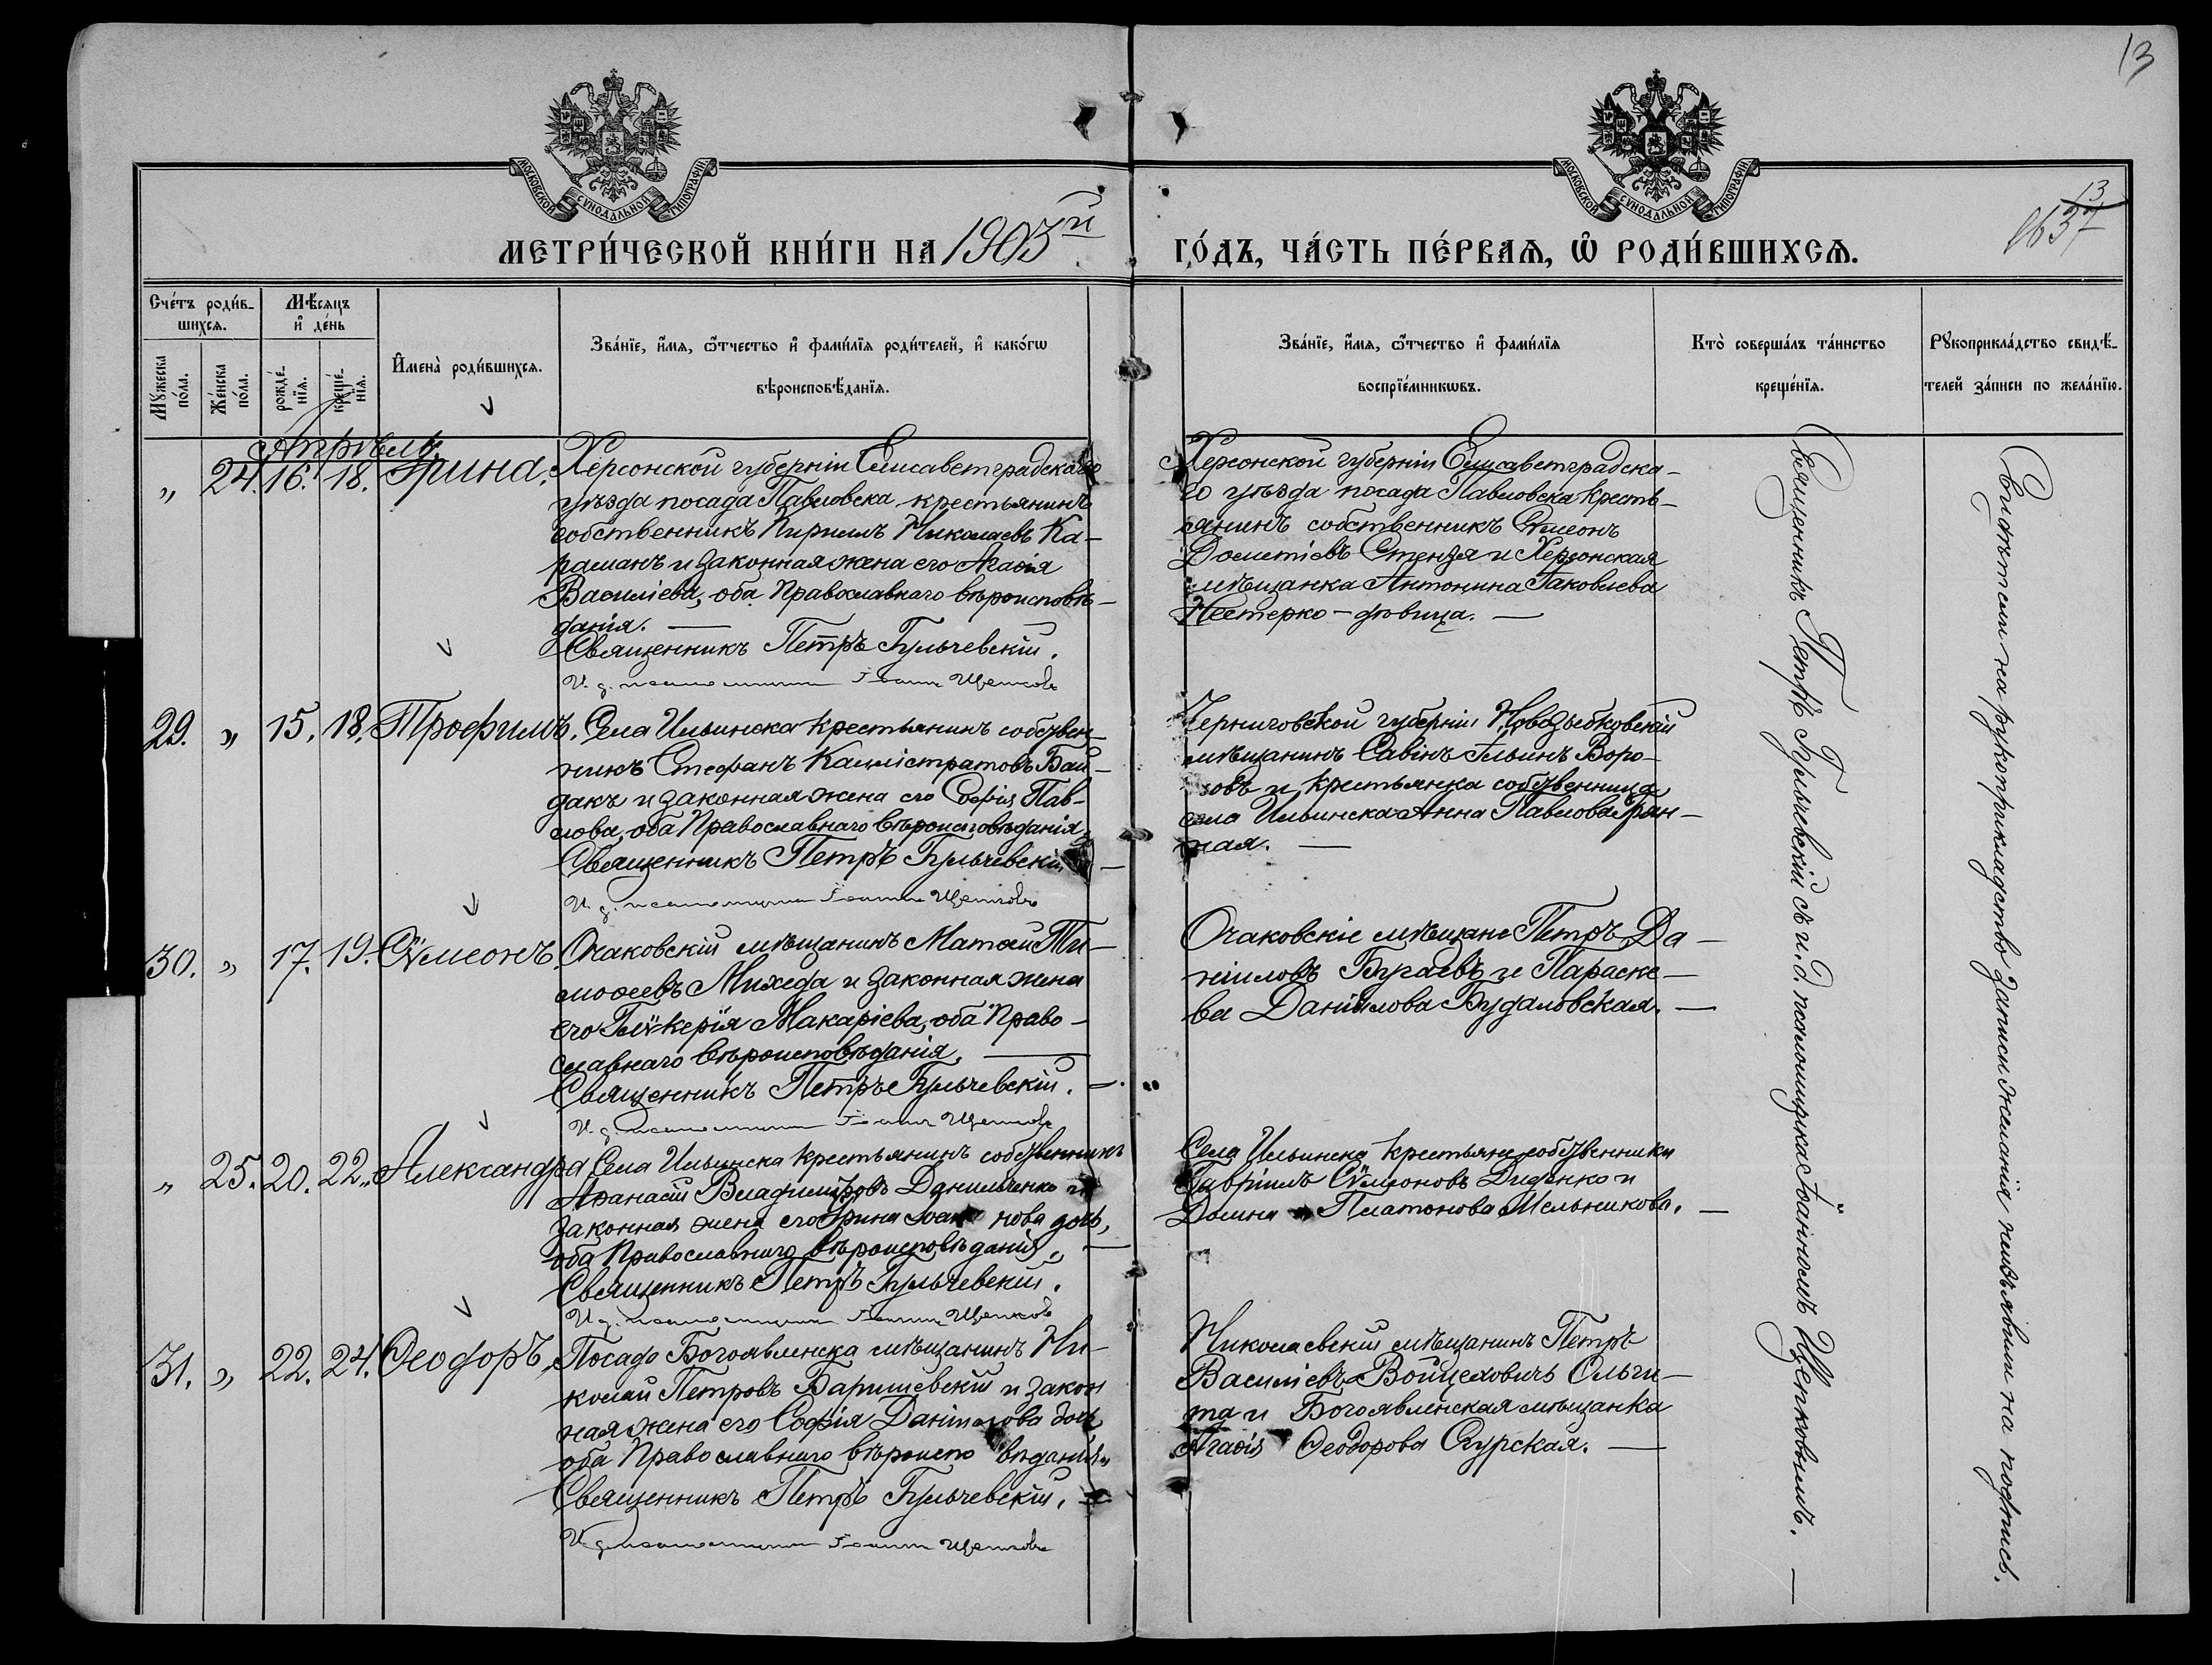 13
МОСКОВСКОЙ СѴНОДАЛЬНОЙ ТИПОГРАФІИ
МОСКОВСКОЙ СѴНОДАЛЬНОЙ ТИПОГРАФІИ
МЕТРИ́ЧЕСКОЙ КНИ́ГИ НА 1903й
ГО́ДЪ, ЧА́СТЬ ПЕ́РВАѦ, Ѡ РОДИ́ВШИХСѦ.
13
Сче́тъ роди́в-
шихсѧ.
Мѣ́сѧцъ
и҆ де́нь
Мꙋ́жеска
по́ла.
Же́нска
по́ла.
рожде́-
нїѧ.
креще́-
нїѧ.
И҆мена̀ роди́вшихсѧ.
Зва́нїе, и҆́мѧ, ѻ҆́тчество и҆ фами́лїѧ роди́телей, и҆ како́гѡ
вѣроисповѣ́данїѧ.
Зва́нїе, и҆́мѧ, ѻ҆́тчество и҆ фами́лїѧ
воспрїе́мникѡвъ.
Кто̀ соверша́лъ та́инство
креще́нїѧ.
Рꙋкоприкла́дство свидѣ́-
телей за́писи по жела́нїю.
Апрѣль
„ 24. 16. 18. Ирина.
Херсонской губерніи Елисаветградскаго
уѣзда посада Павловска крестьянинъ
собственникъ Кириллъ Николаевъ Ка-
раманъ и законная жена его Агаѳія
Василіева, оба Православнаго вѣроисповѣ-
данія. —
Священникъ Петръ Бульчевскій.
И. д. псаломщика Іоаннъ Щепковъ
Херсонской губерніи Елисаветградска-
го уѣзда посада Павловска кресть-
янинъ собственникъ Сѵмеонъ
Дометіевъ Стенза и Херсонская
мѣщанка Антонина Іаковлева
Нестерко - дѣвица. —
29. „ 15. 18. Трофимъ.
Села Ильинска крестьянинъ собствен-
никъ Стефанъ Каллістратовъ Бай-
дакъ и законная жена его Софія Пав-
лова, оба Православнаго вѣроисповѣданія.
Священникъ Петръ Бульчевскій. —
И. д. псаломщика Іоаннъ Щепковъ
Черниговской губерніи Новозыбковскій
мѣщанинъ Савінъ Ильинъ Воро-
новъ и крестьянка собственница
села Ильинска Анна Павлова
ная. —
30. „ 17. 19. Сѵмеонъ.
Очаковскій мѣщанинъ Матѳій Ти-
моѳеевъ Михеда и законная жена
его Глѵкерія Макаріева, оба Право-
славнаго вѣроисповѣданія. —
Священникъ Петръ Бульчевскій. —
И. д. псаломщика Іоаннъ Щепковъ
Очаковскіе мѣщане Петръ Да-
ніиловъ Бугаевъ и Параске-
ва Даніилова Будаловская. —
„ 25. 20. 22. Александра
Села Ильинска крестьянинъ собственникъ
Аѳанасій Владиміровъ Данильченко и
законная жена его Ирина Іоаннова дочь,
оба Православнаго вѣроисповѣданія. —
Священникъ Петръ Бульчевскій.
И. д. псаломщика Іоаннъ Щепковъ
Села Ильинска крестьяне собственники
Гавріилъ Сѵмеоновъ Диденко и
Домна Платонова Мельникова. —
31. „ 22. 24. Ѳеодоръ.
Посада Богоявленска мѣщанинъ Ни-
колай Петровъ Баришевскій и закон
ная жена его Софія Даніилова дочь
оба Православнаго вѣроисповѣданія.
Священникъ Петръ Бульчевскій. —
И. д. псаломщика Іоаннъ Щепковъ
Николаевскій мѣщанинъ Петръ
Василіевъ Войцеховичъ Ольги-
та и Богоявленская мѣщанка
Агаѳія Ѳеодорова Сгурская. —
Священникъ Петръ Бульчевскій съ и. д. псаломщика Іоанномъ Щепковымъ. —
Свидѣтели на рукоприкладство записи желанія не изъявили на подпись.